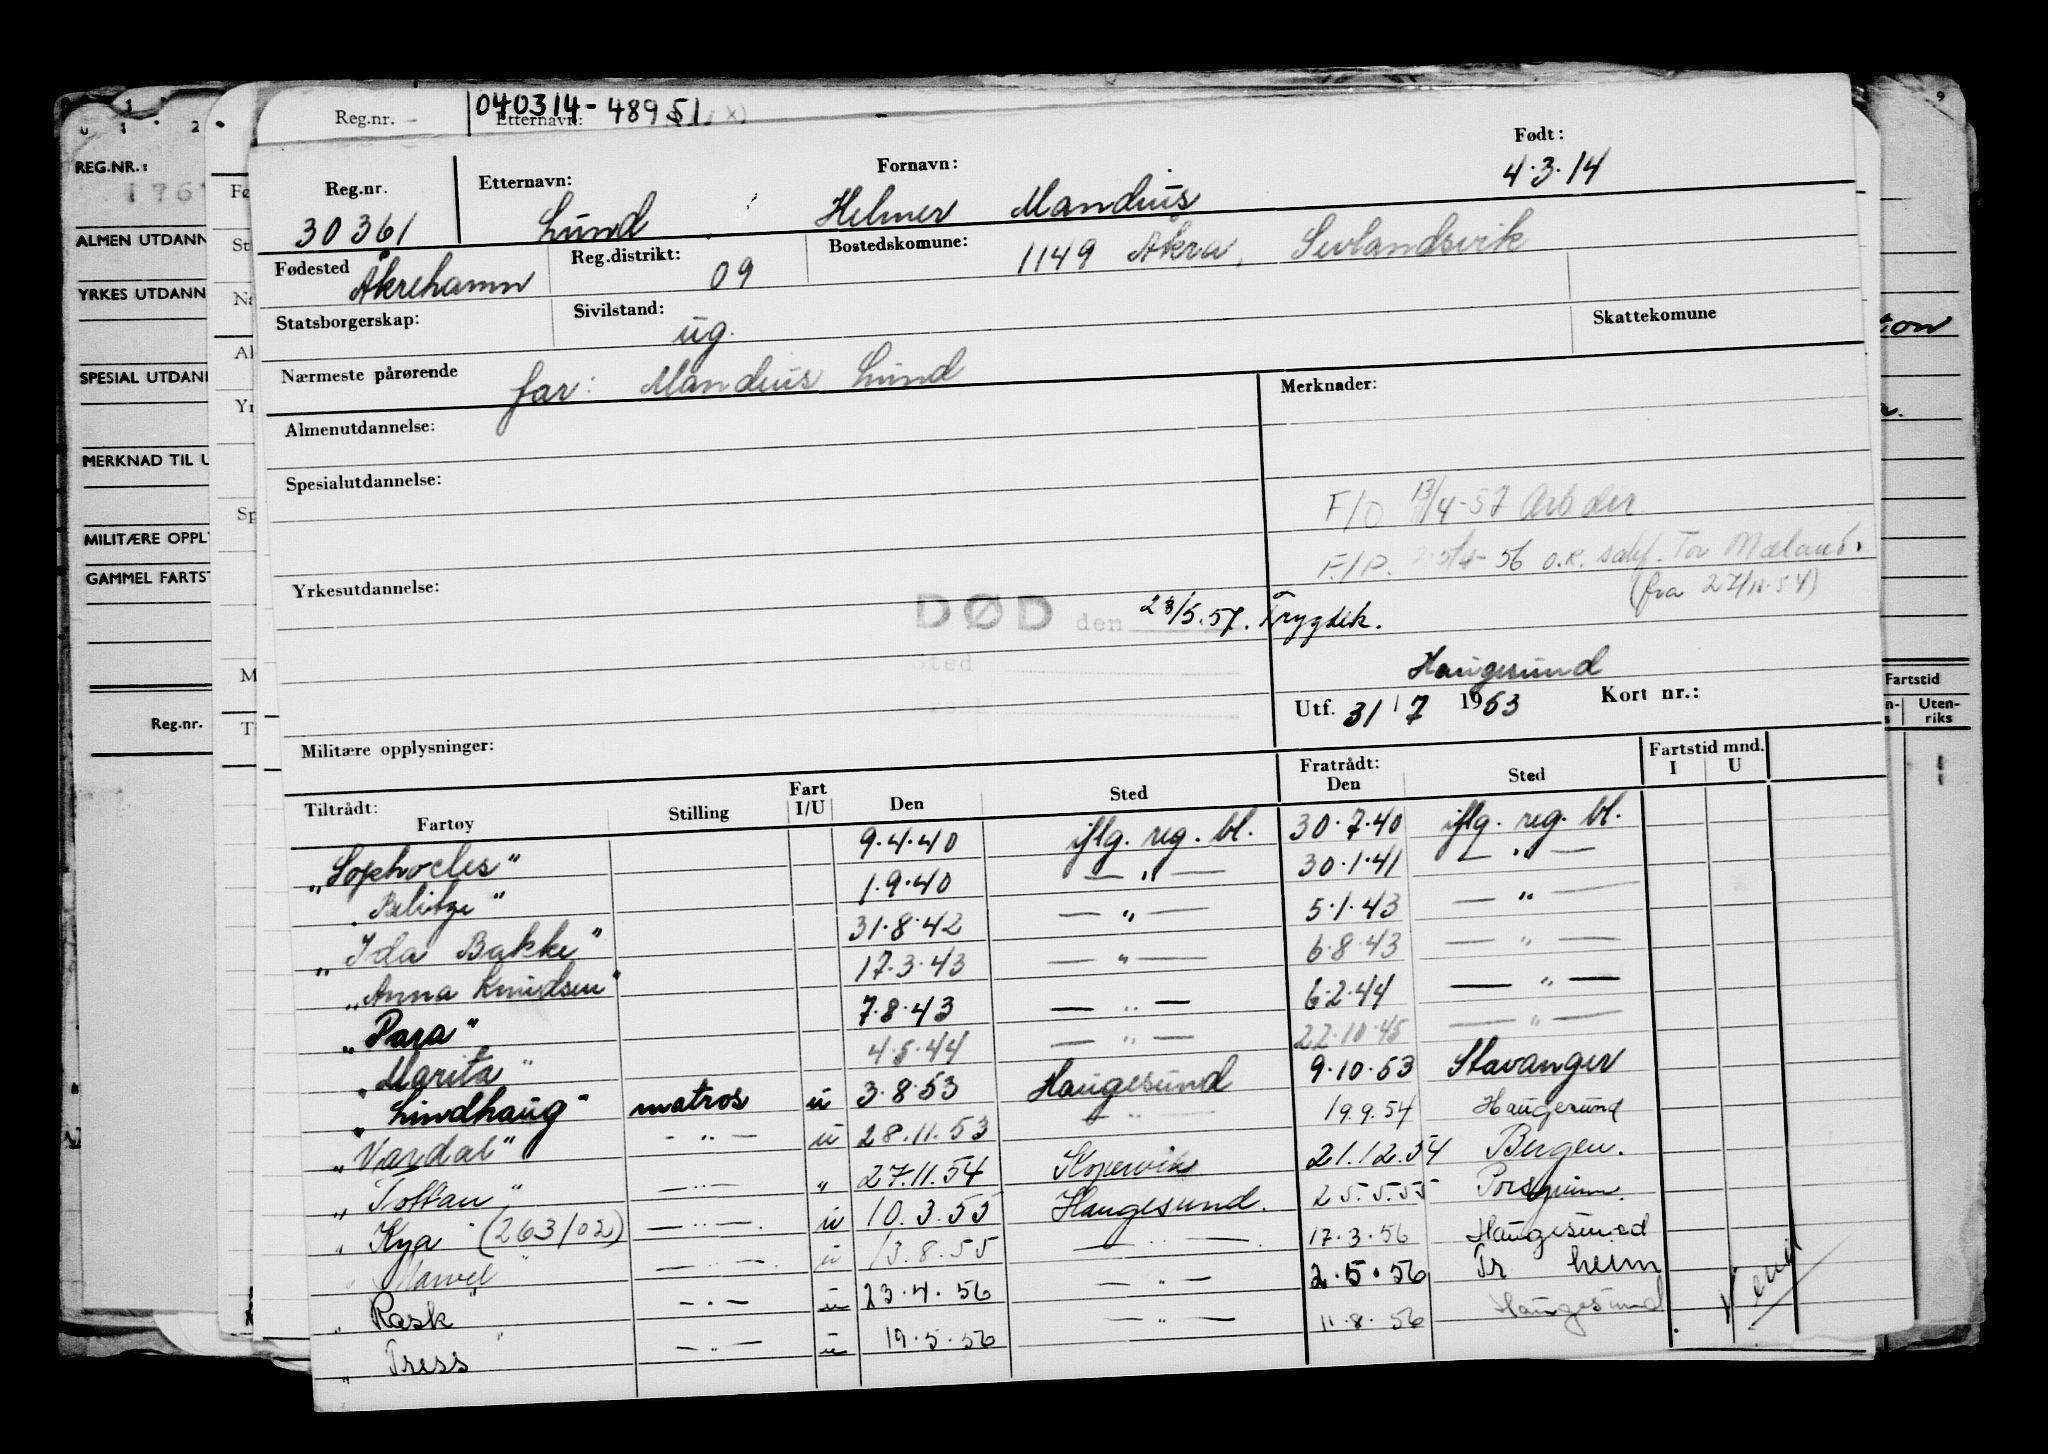 Reg.nr. 040314-48951
Etternavn:
Reg.nr. Etternavn: Fornavn: Født:
30361 Lund Helmer Mandius 4.3.14
Fødested Reg.distrikt: Bostedskomune:
Åkrehamn 09 1149 Åkra, Sevlandsvik
Statsborgerskap: Sivilstand: Skattekomune
ug.
Nærmeste pårørende far: Mandius Lund
Almenutdannelse: Merknader:
Spesialutdannelse:
F/O 13/4-57 Arb der
F/P. 25/4-56 O.K. Tor Mæland.
(fra 27/11-54)
Yrkesutdannelse:
DØD den 23/5.57. Trygdek.
Sted
Haugesund
Utf. 31/7 1953 Kort nr.:
Militære opplysninger:
Tiltrådt: Fratrådt: Fartstid mnd.
Fartøy Stilling Fart I/U Den Sted Den Sted I U
"Sophocles" 9.4.40 iflg. reg. bl. 30.7.40 iflg. reg. bl.
"Belitze" 1.9.40 — " — 30.1.41 — " —
"Ida Bakke" 31.8.42 — " — 5.1.43 — " —
"Anna Knudsen" 17.3.43 — " — 6.8.43 — " —
"Para" 7.8.43 — " — 6.2.44 — " —
"Marita" 4.5.44 — " — 22.10.45 — " —
"Lindhaug" matros u 3.8.53 Haugesund 9.10.53 Stavanger
"Vardal" — " — u 28.11.53 — " — 19.9.54 Haugesund
"Toftan" — " — " 27.11.54 Kopervik 21.12.54 Bergen.
"Kya" (263/02) — " — u 10.3.55 Haugesund. 25.5.55 Porsgrunn.
"Marvel" — " — u 13.8.55 — " — 17.3.56 Haugesund
"Rask" — " — u 23.4.56 — " — 2.5.56 Tr heim
"Tress" — " — u 19.5.56 — " — 11.8.56 Haugesund
Vend
REG.NR.:
ALMEN UTDANN
YRKES UTDANN
SPESIAL UTDAN
MERKNAD TIL U
MILITÆRE OPPL
GAMMEL FARTST
Reg.nr.
Fartstid
Uten-
riks